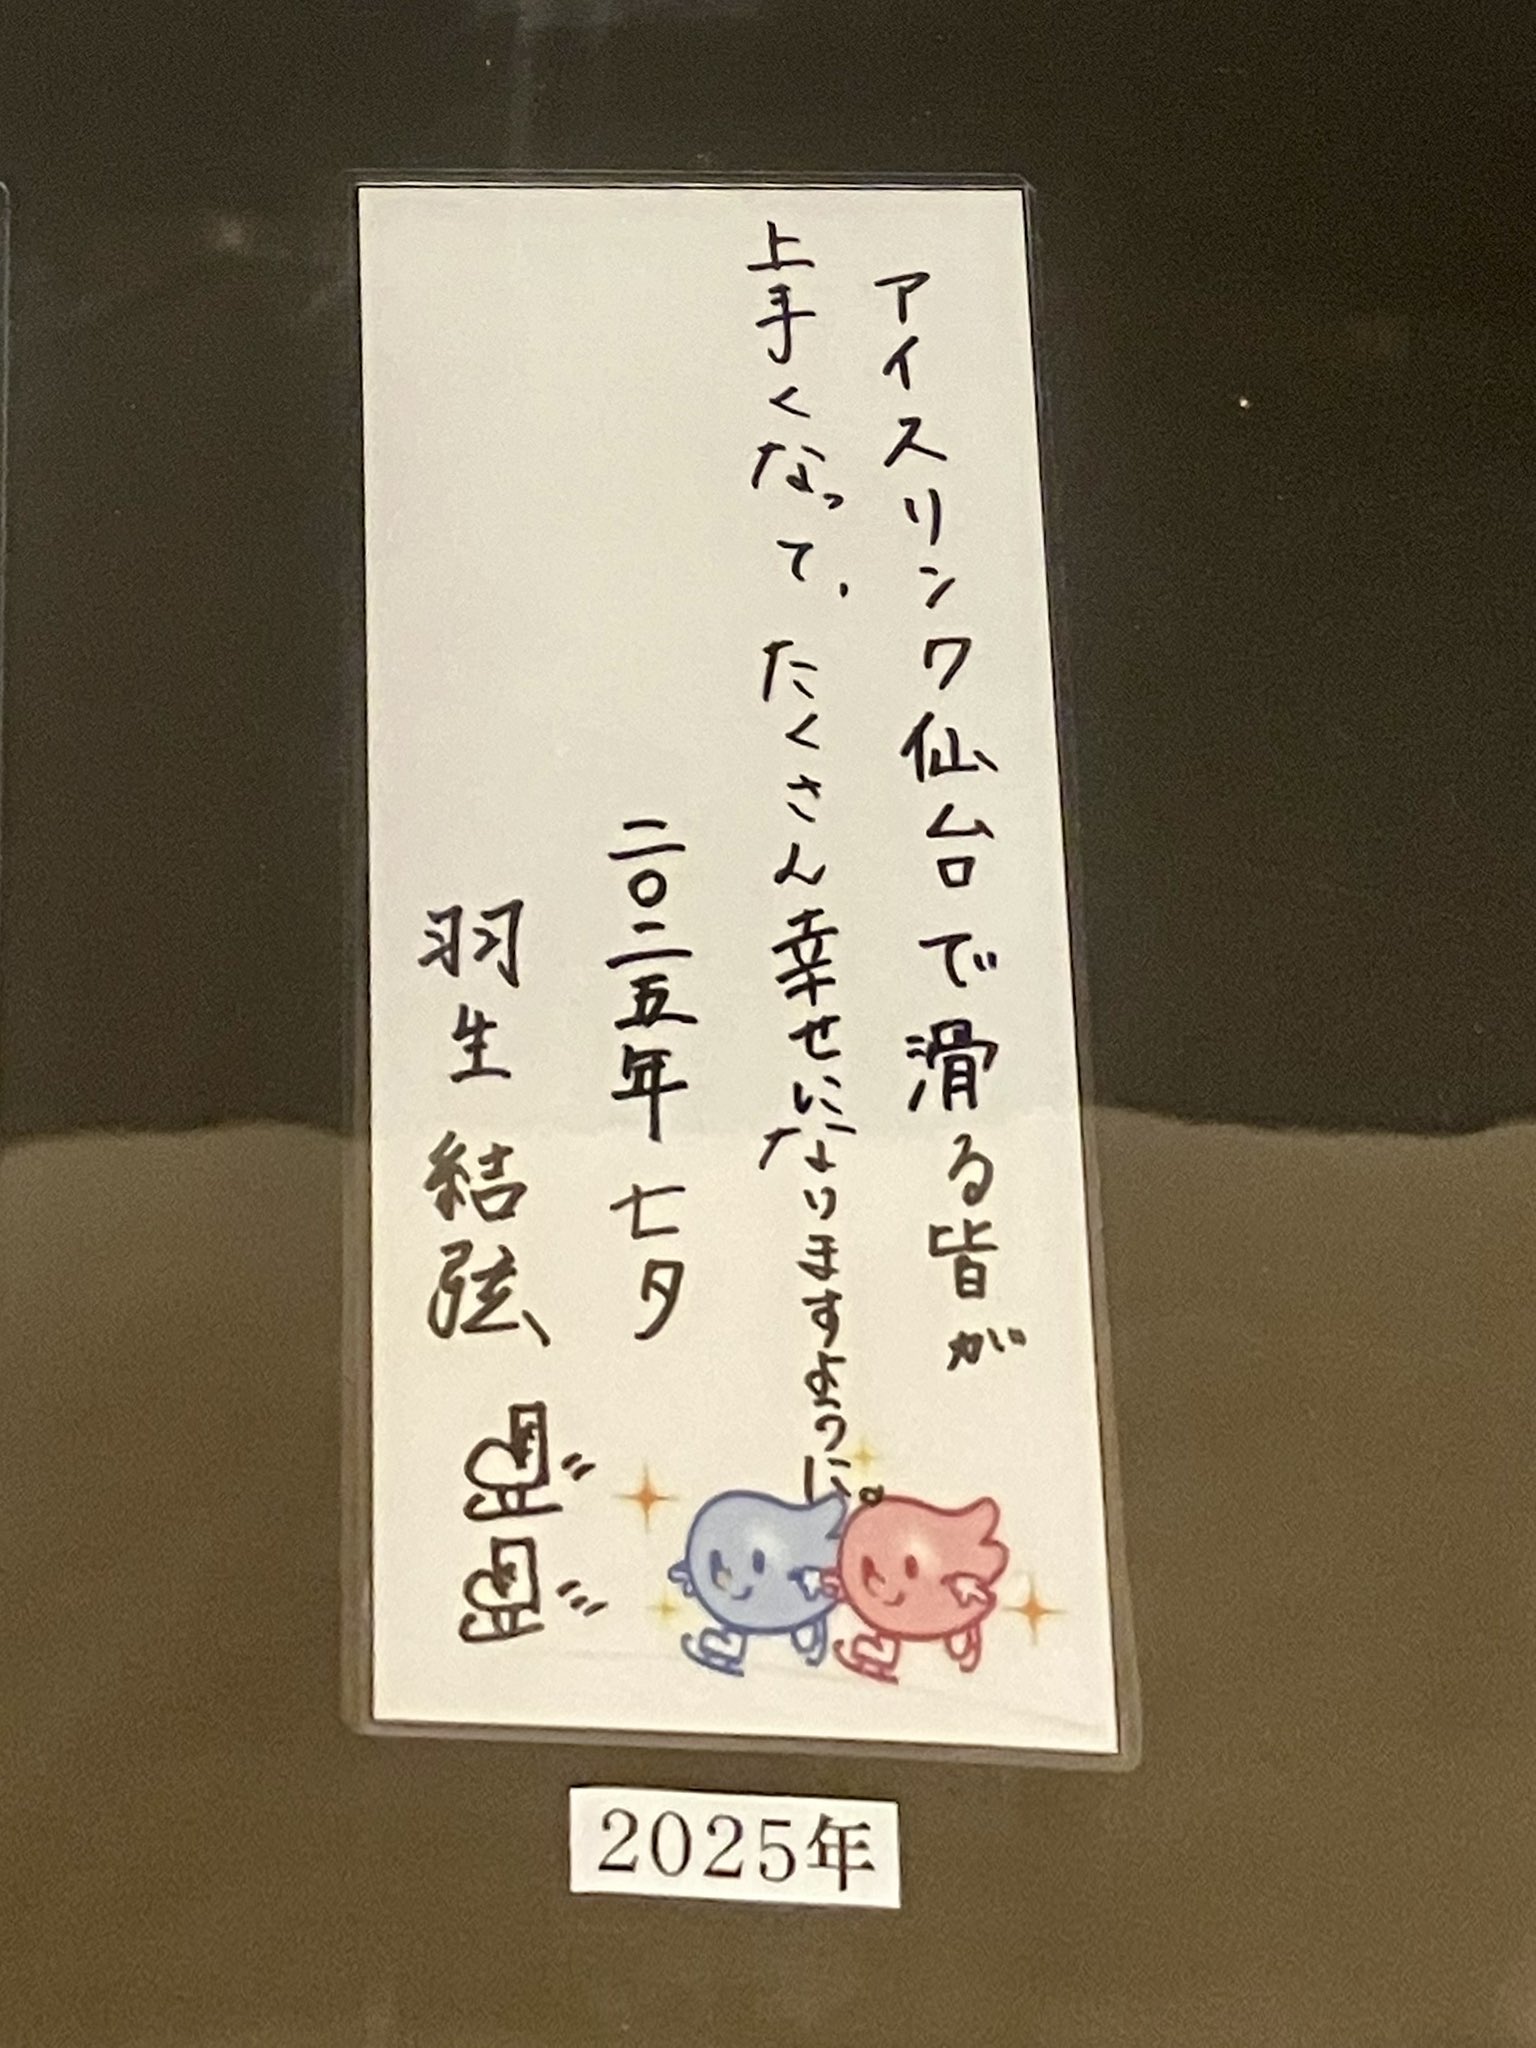 アイスリンク仙台で滑る皆が
上手くなって、たくさん幸せになりますように。
二〇二五年 七夕
羽生結弦
2025年